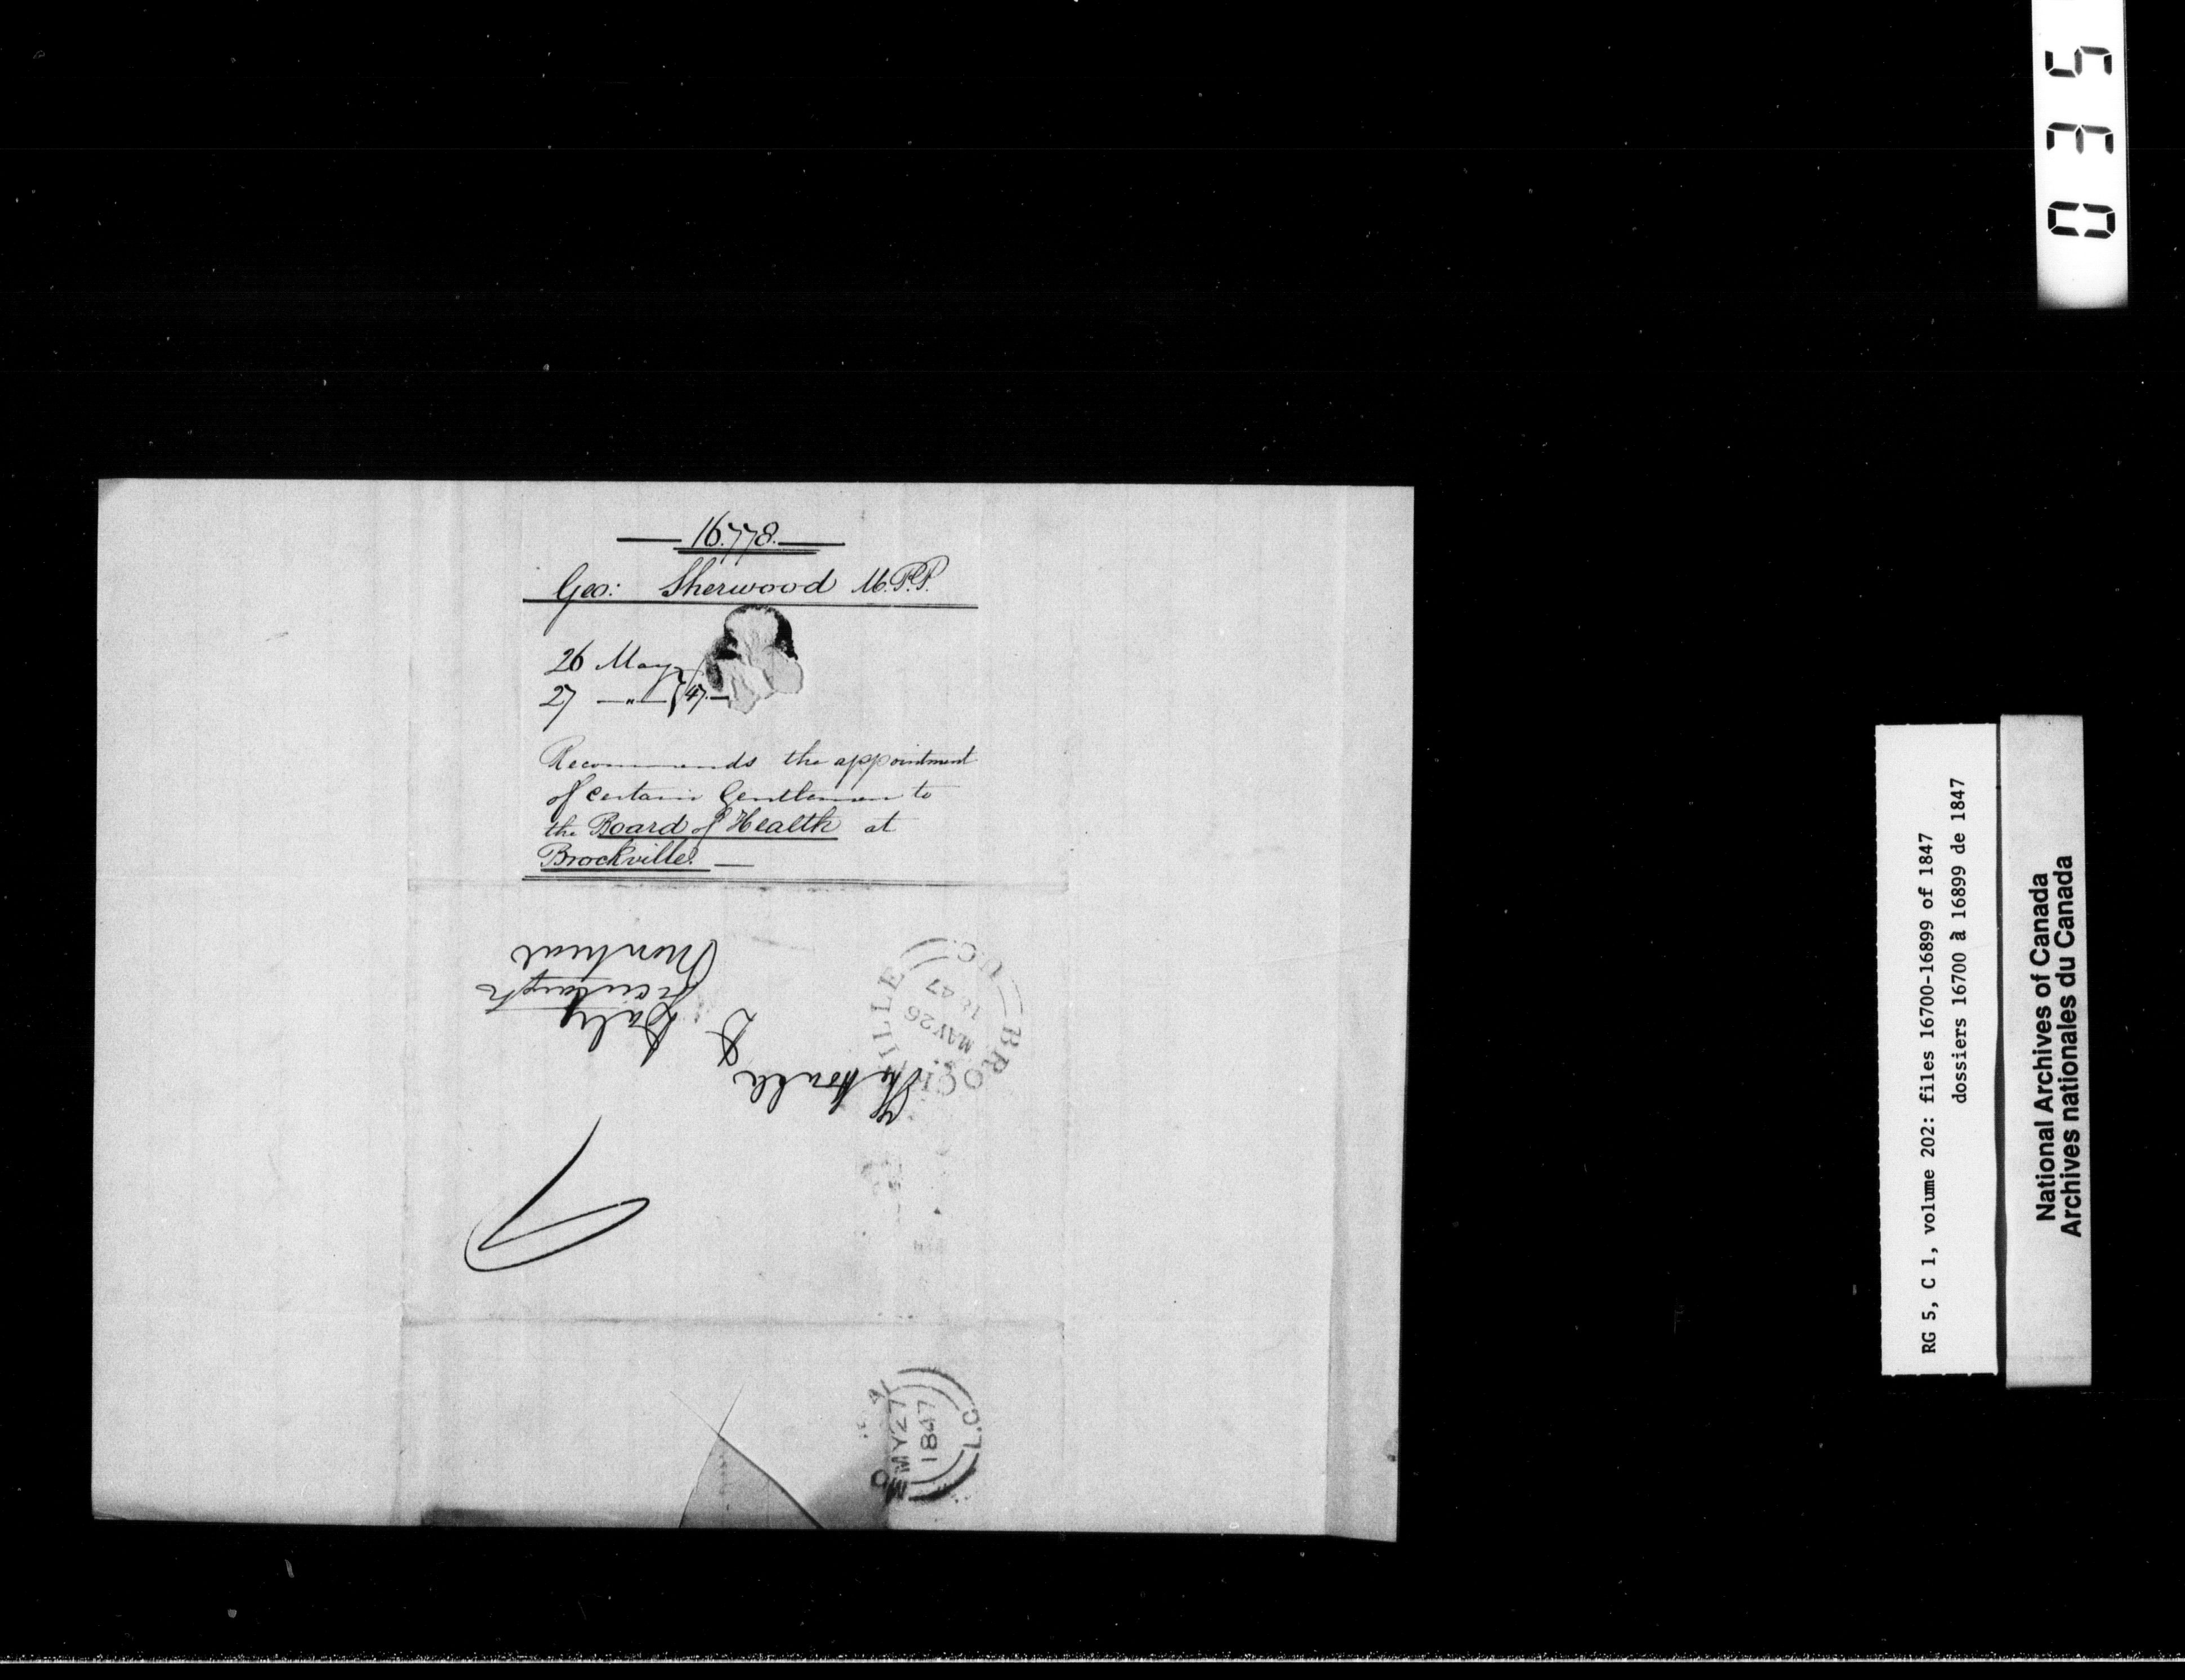 16.778.
Geo: Sherwood M.P.P.
26 May
27 —"— } 47.—
Recommends the appointment
of certain Gentlemen to
the Board of Health at
Brockville. —
The Honble
D Daly
Secretary
Montreal
BROCKVILLE U.C.
MAY 26
1847
MY 27
1847
L.C.
035
RG 5, C 1, volume 202: files 16700-16899 of 1847
dossiers 16700 à 16899 de 1847
National Archives of Canada
Archives nationales du Canada